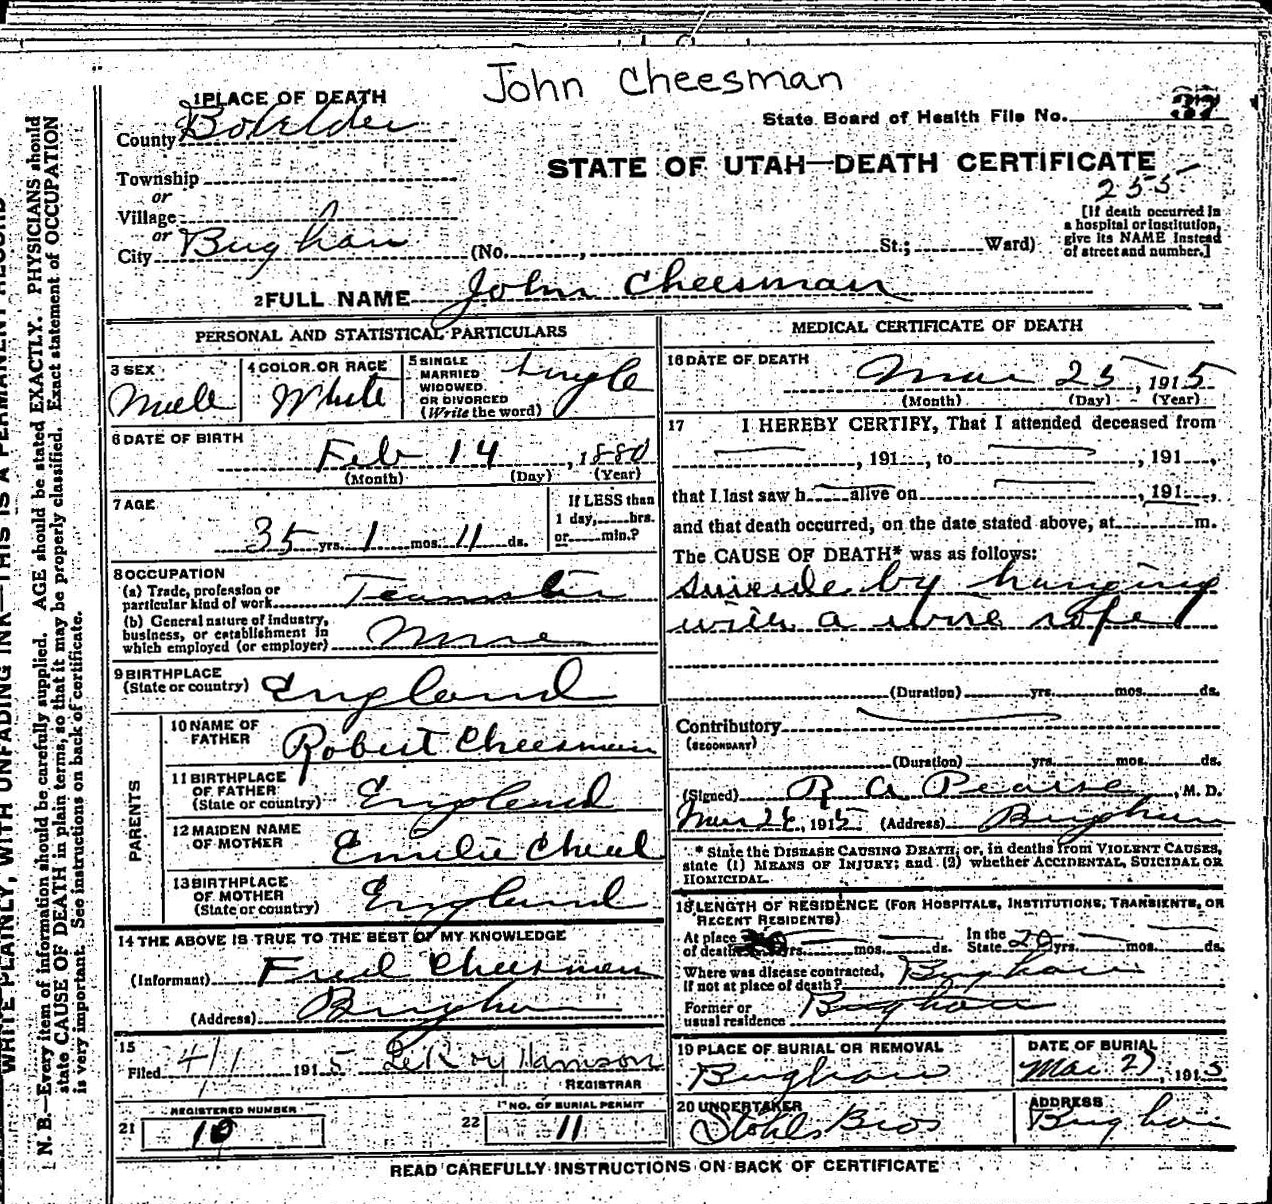 John Cheesman
1 PLACE OF DEATH
County Boxelder
State Board of Health File No. 37
STATE OF UTAH—DEATH CERTIFICATE
255
Township
or
Village
or
City Brigham (No. , St.; Ward)
[If death occurred in
a hospital or institution,
give its NAME instead
of street and number.]
2 FULL NAME John Cheesman
PERSONAL AND STATISTICAL PARTICULARS
3 SEX
Male
4 COLOR OR RACE
White
5 SINGLE
MARRIED
WIDOWED
OR DIVORCED
(Write the word)
Single
6 DATE OF BIRTH
Feb 14, 1880
(Month) (Day) (Year)
7 AGE
35 yrs. 1 mos. 11 ds.
If LESS than
1 day, hrs.
or min.?
8 OCCUPATION
(a) Trade, profession or
particular kind of work Teamster
(b) General nature of industry,
business, or establishment in
which employed (or employer)
9 BIRTHPLACE
(State or country) England
PARENTS
10 NAME OF
FATHER Robert Cheesman
11 BIRTHPLACE
OF FATHER
(State or country) England
12 MAIDEN NAME
OF MOTHER Emilie
13 BIRTHPLACE
OF MOTHER
(State or country) England
14 THE ABOVE IS TRUE TO THE BEST OF MY KNOWLEDGE
(Informant) Fred Cheesman
(Address) Brigham
15
Filed 4/1 1915 LeRoy Harrison
REGISTRAR
REGISTERED NUMBER
21 10
NO. OF BURIAL PERMIT
22 11
MEDICAL CERTIFICATE OF DEATH
16 DATE OF DEATH
Mar 25, 1915
(Month) (Day) (Year)
17 I HEREBY CERTIFY, That I attended deceased from
, 191 , to , 191 ,
that I last saw h alive on , 191 ,
and that death occurred, on the date stated above, at m.
The CAUSE OF DEATH* was as follows:
suicide by hanging
with a wire rope
(Duration) yrs. mos. ds.
Contributory
(SECONDARY)
(Duration) yrs. mos. ds.
(Signed) R A Pearse, M. D.
Mar 26, 1915 (Address) Brigham
* State the DISEASE CAUSING DEATH; or, in deaths from VIOLENT CAUSES,
state (1) MEANS OF INJURY; and (2) whether ACCIDENTAL, SUICIDAL OR
HOMICIDAL.
18 LENGTH OF RESIDENCE (FOR HOSPITALS, INSTITUTIONS, TRANSIENTS, OR
RECENT RESIDENTS)
At place
of death yrs. mos. ds.
In the
State 20 yrs. mos. ds.
Where was disease contracted,
if not at place of death? Brigham
Former or
usual residence Brigham
19 PLACE OF BURIAL OR REMOVAL
Brigham
DATE OF BURIAL
Mar 27, 1915
20 UNDERTAKER
Stohls Bros
ADDRESS
Brigham
READ CAREFULLY INSTRUCTIONS ON BACK OF CERTIFICATE
WRITE PLAINLY, WITH UNFADING INK—THIS IS A PERMANENT RECORD
N. B.—Every item of information should be carefully supplied. AGE should be stated EXACTLY. PHYSICIANS should
state CAUSE OF DEATH in plain terms, so that it may be properly classified. Exact statement of OCCUPATION
is very important. See instructions on back of certificate.